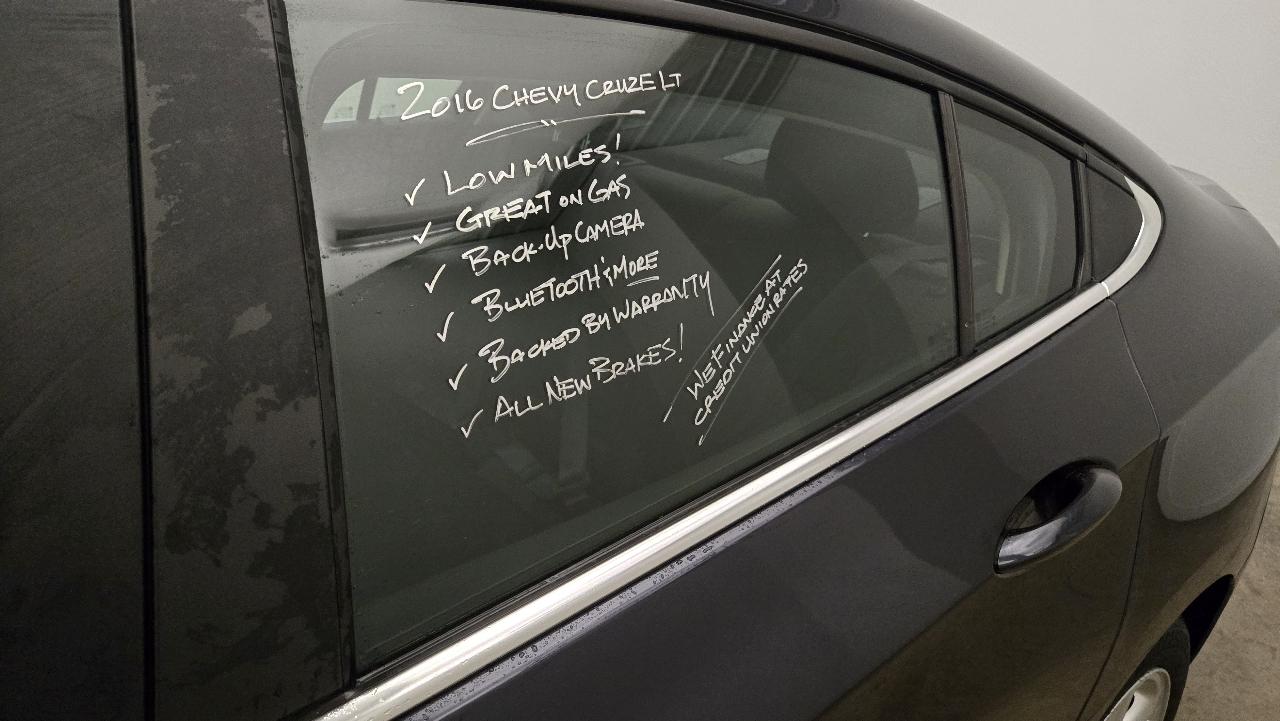 2016 CHEVY CRUZE LT
✓ LOW MILES!
✓ GREAT ON GAS
✓ BACK-UP CAMERA
✓ BLUETOOTH & MORE
✓ BACKED BY WARRANTY
✓ ALL NEW BRAKES!
WE FINANCE AT
CREDIT UNION RATES